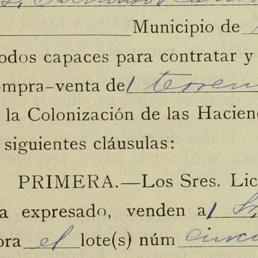 Municipio de
odos capaces para contratar y
ompra-venta de terren
la Colonización de las Hacien
siguientes cláusulas:
PRIMERA.—Los Sres. Lic
a expresado, venden a
ora el lote(s) núm